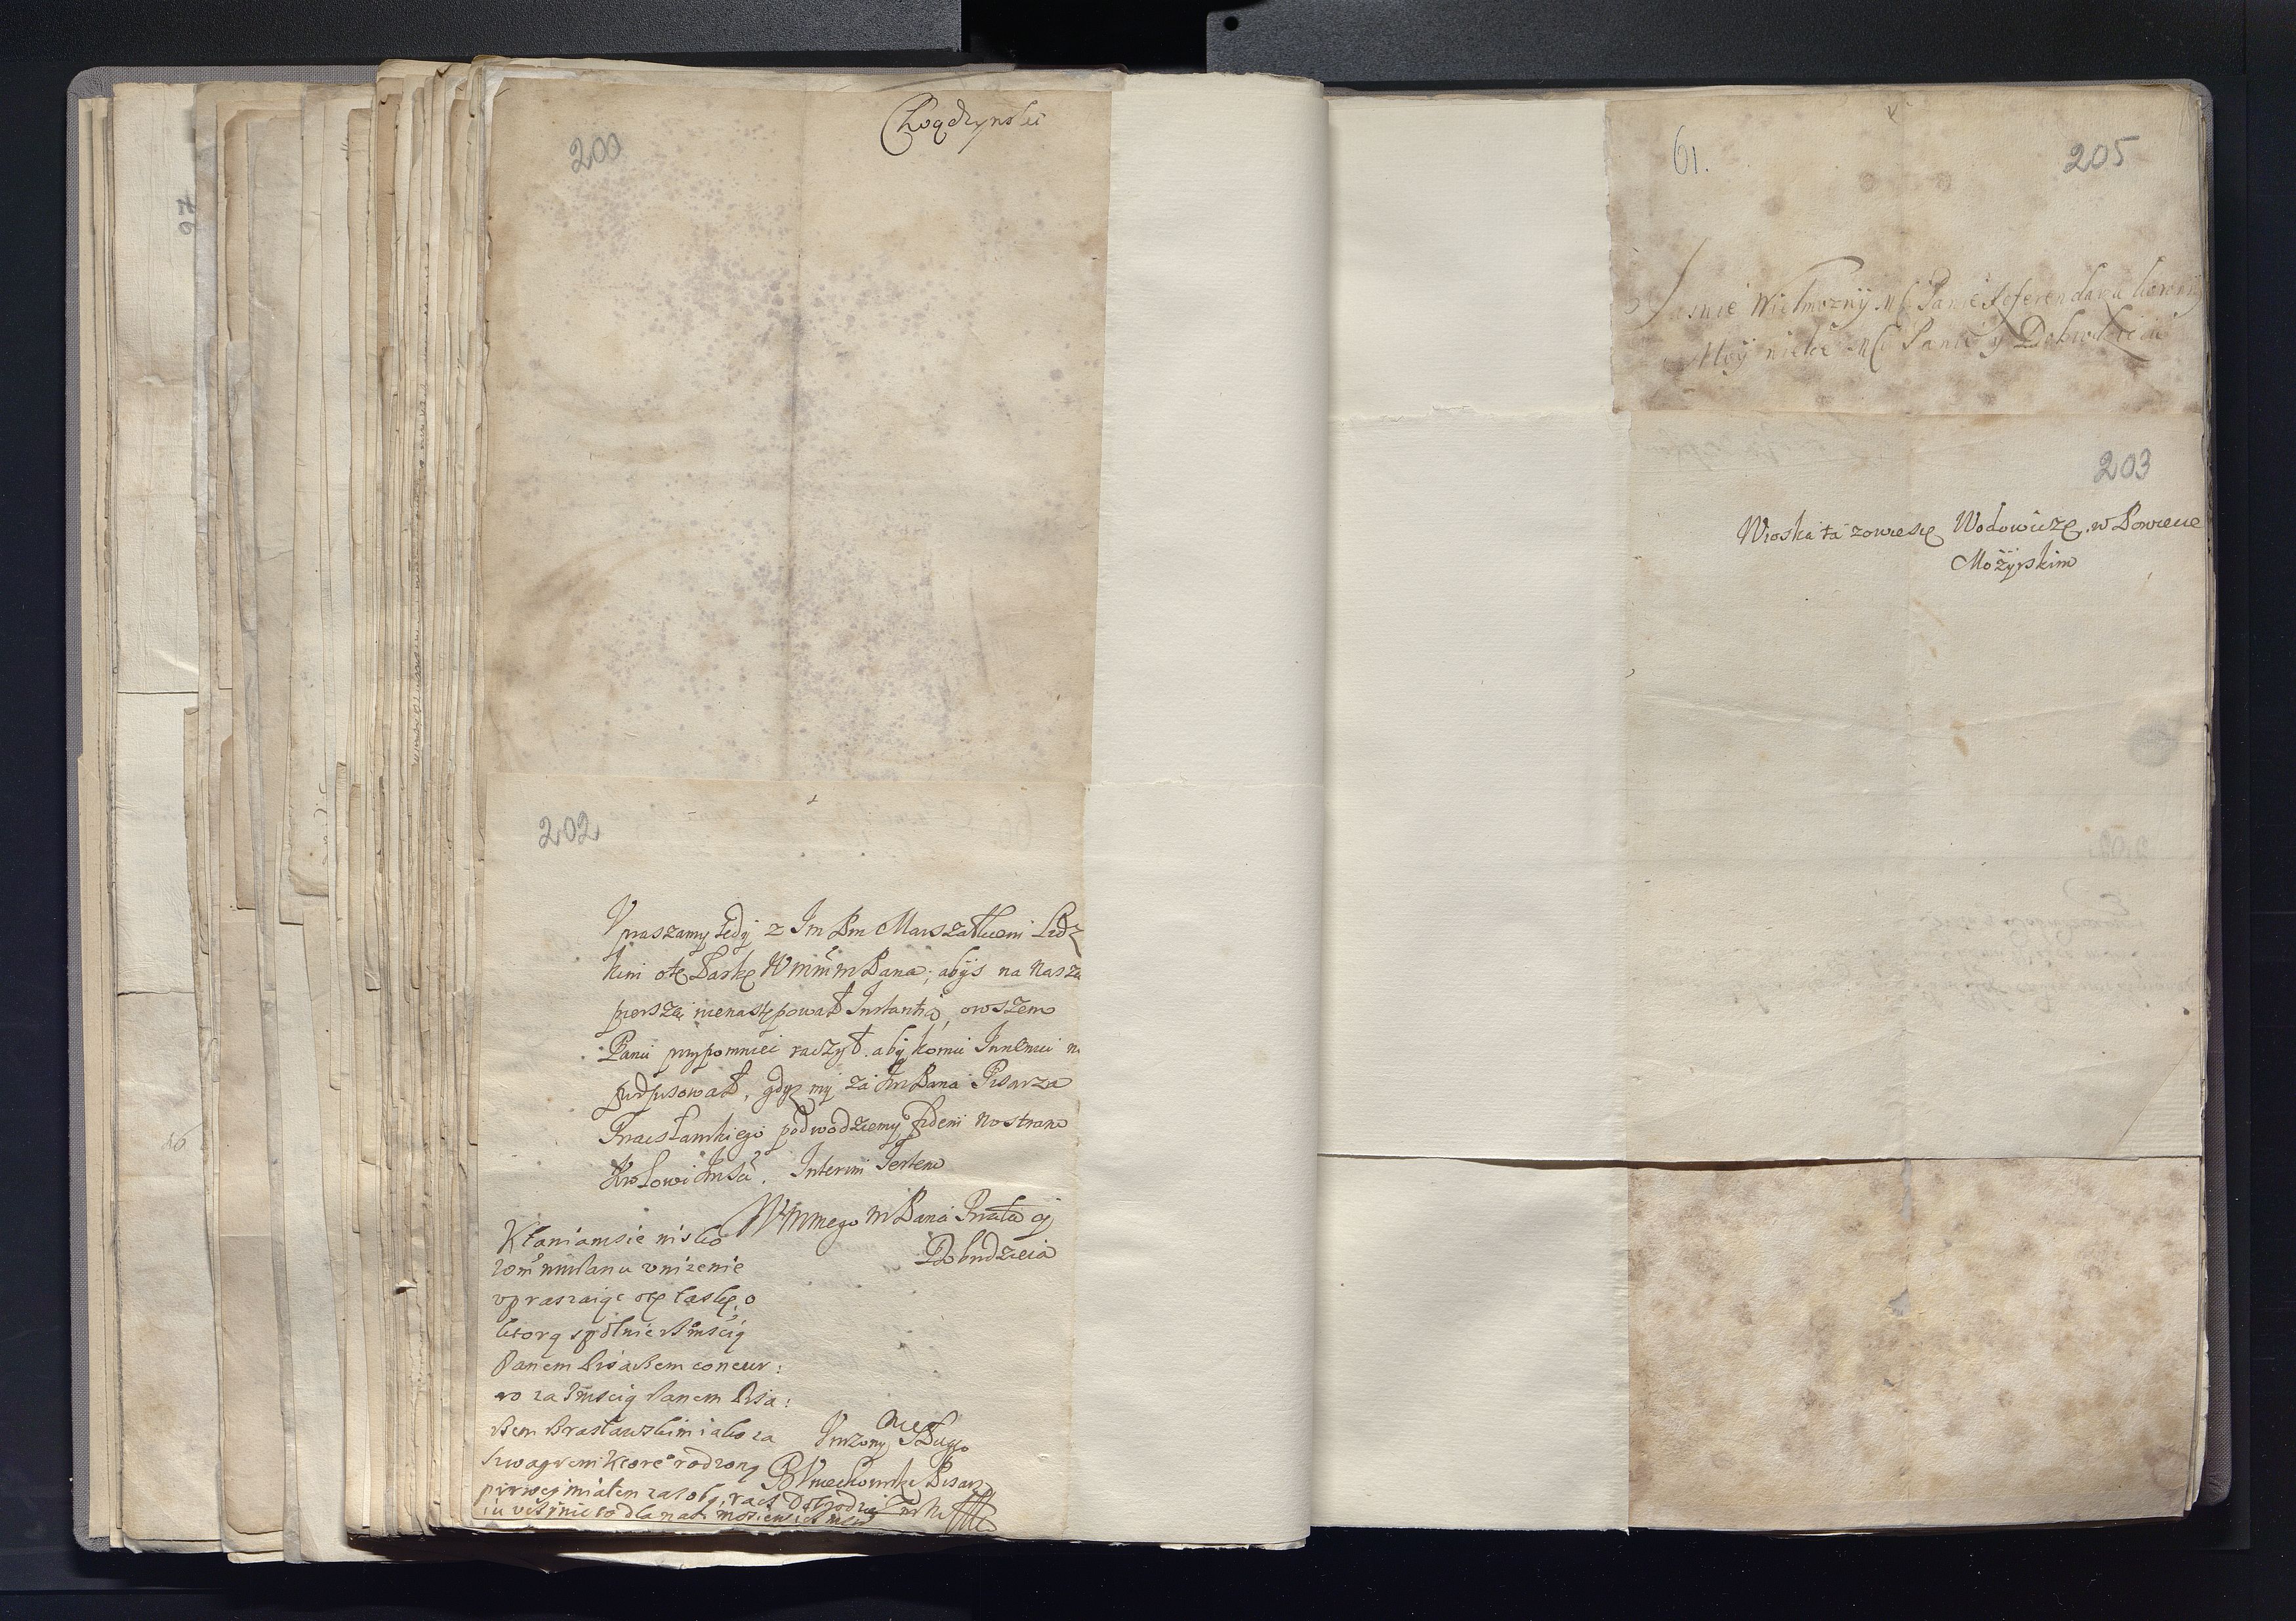 200
Chodzyński
202
Vpraszamy tedy z Jm Pm Marszałkiem Lidz
kim otę Łaskę Wmm Pana, abyś na nasza
pierszą nienastępował Instantią, owszem
Panu przypomniei raczył, aby komu Innemu n
podpisował, gdyż my za Jm Pana Pisarza
Bracsławskiego podwodziemy fidem nostram
Krolowi Jmsci. Interim Jestem
Wmmego m Pana Brata y
Dobrodzieia
Kłaniamsie nisko
mmPanu vnizenie
vpraszaiąc otę łaskę, o
ktorą społnie z Jmścią
Panem Pisarzem concur:
ro za Jmscią Panem Pisa:
rzem Brasławskim iako za
szwagrem ktore° rodzoną
pirwei miałem za sobą, racz Dobrodzie
iu vczynic to dla nas
Vnizony Sługa
Pisarz
61.
205
Jasnie Wielmozny Mci Panie Referendarzu Koronny
Moy wielce Mci Panie y Dobrodzieiu
203
Wioska ta zowiesię Wodowicze, w Powiecie
Możyrskim
97